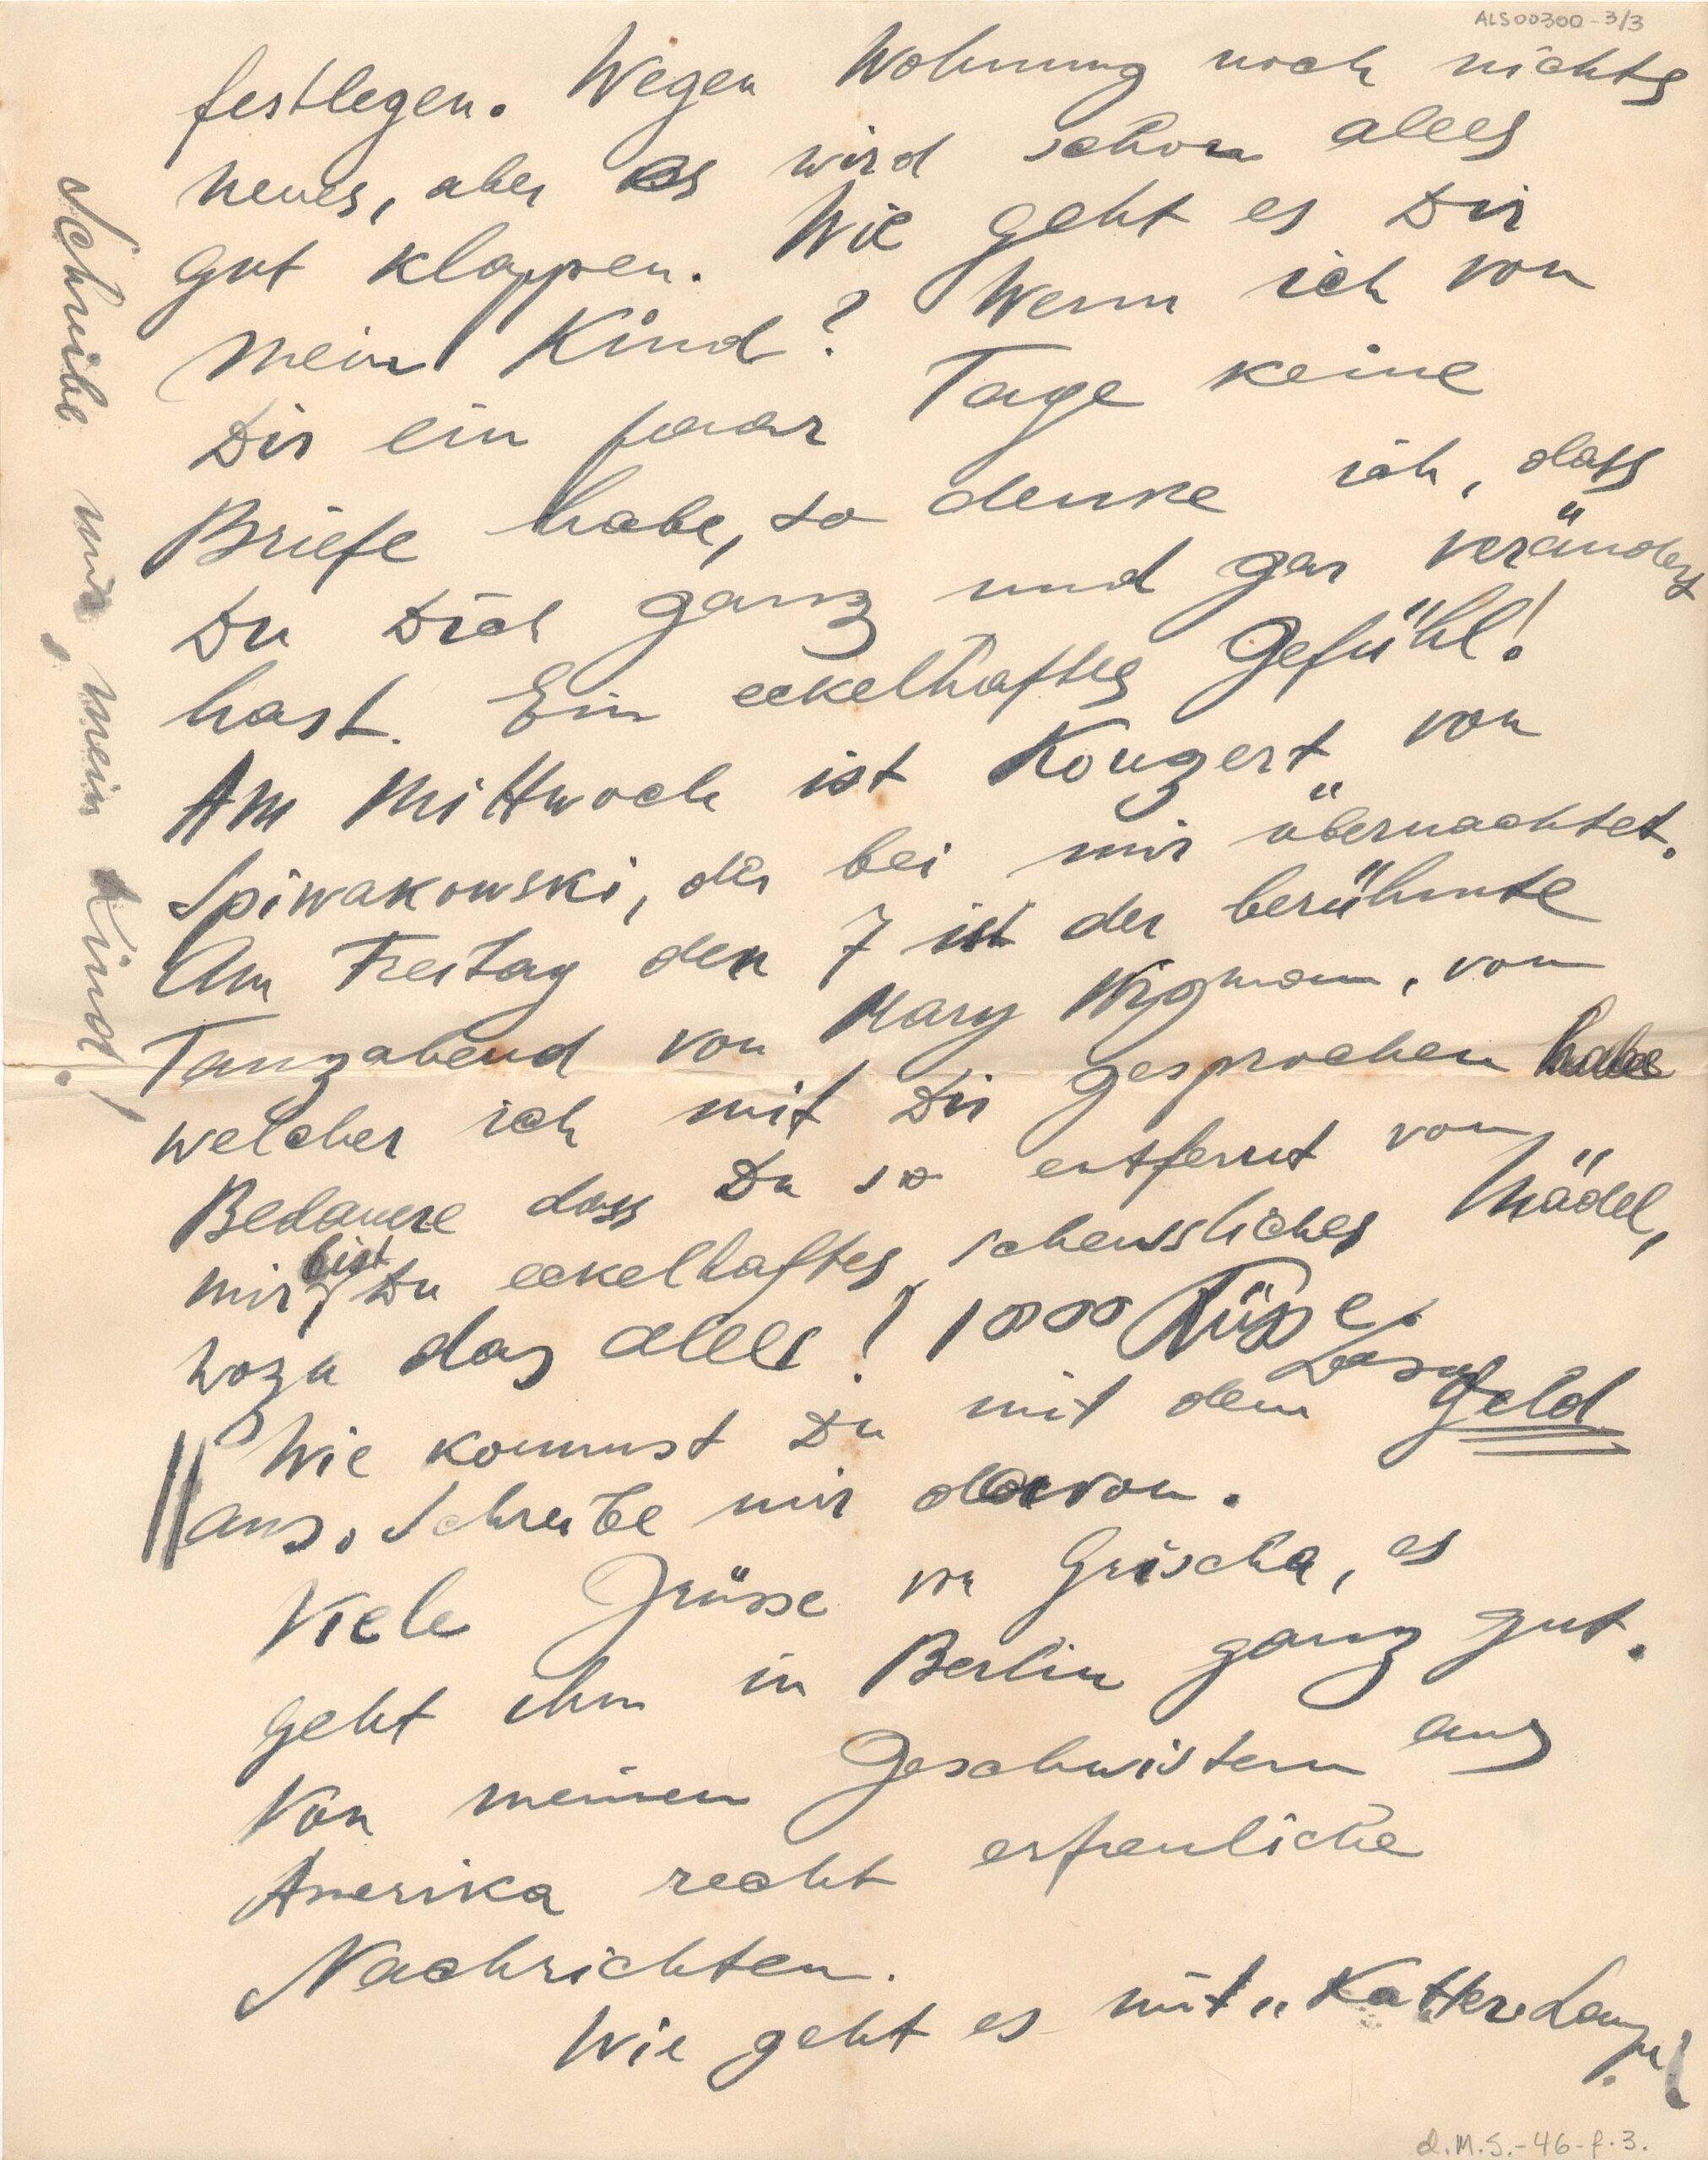 ALS00300-3/3
festlegen. Wegen Wohnung noch nichts
neues, aber es wird schon alles
gut klappen. Wie geht es Dir
mein Kind? Wenn ich von
Dir ein paar Tage keine
Briefe habe, so denke ich, dass
Du Dich ganz und gar verändert
hast. Ein eckelhaftes Gefühl!
Am Mittwoch ist Konzert von
Spiwakowski, der bei mir übernachtet.
Am Freitag den 7 ist der berühmte
Tanzabend von Mary Wigmann, von
welcher ich mit Dir gesprochen habe
Bedauere dass Du so entfernt von
mir bist, Du eckelhaftes, scheussliches Mädel,
wozu das alles! 1000 Küsse.
Lasar
Wie kommst Du mit dem Geld
aus. Schreibe mir davon.
Viele Grüsse von Grischa, es
geht ihm in Berlin ganz gut.
Von meinen Geschwistern aus
Amerika recht erfreuliche
Nachrichten.
Wie geht es mit „Katter
Schreibe mir, mein Kind!
d.M.S.-46-f.3.